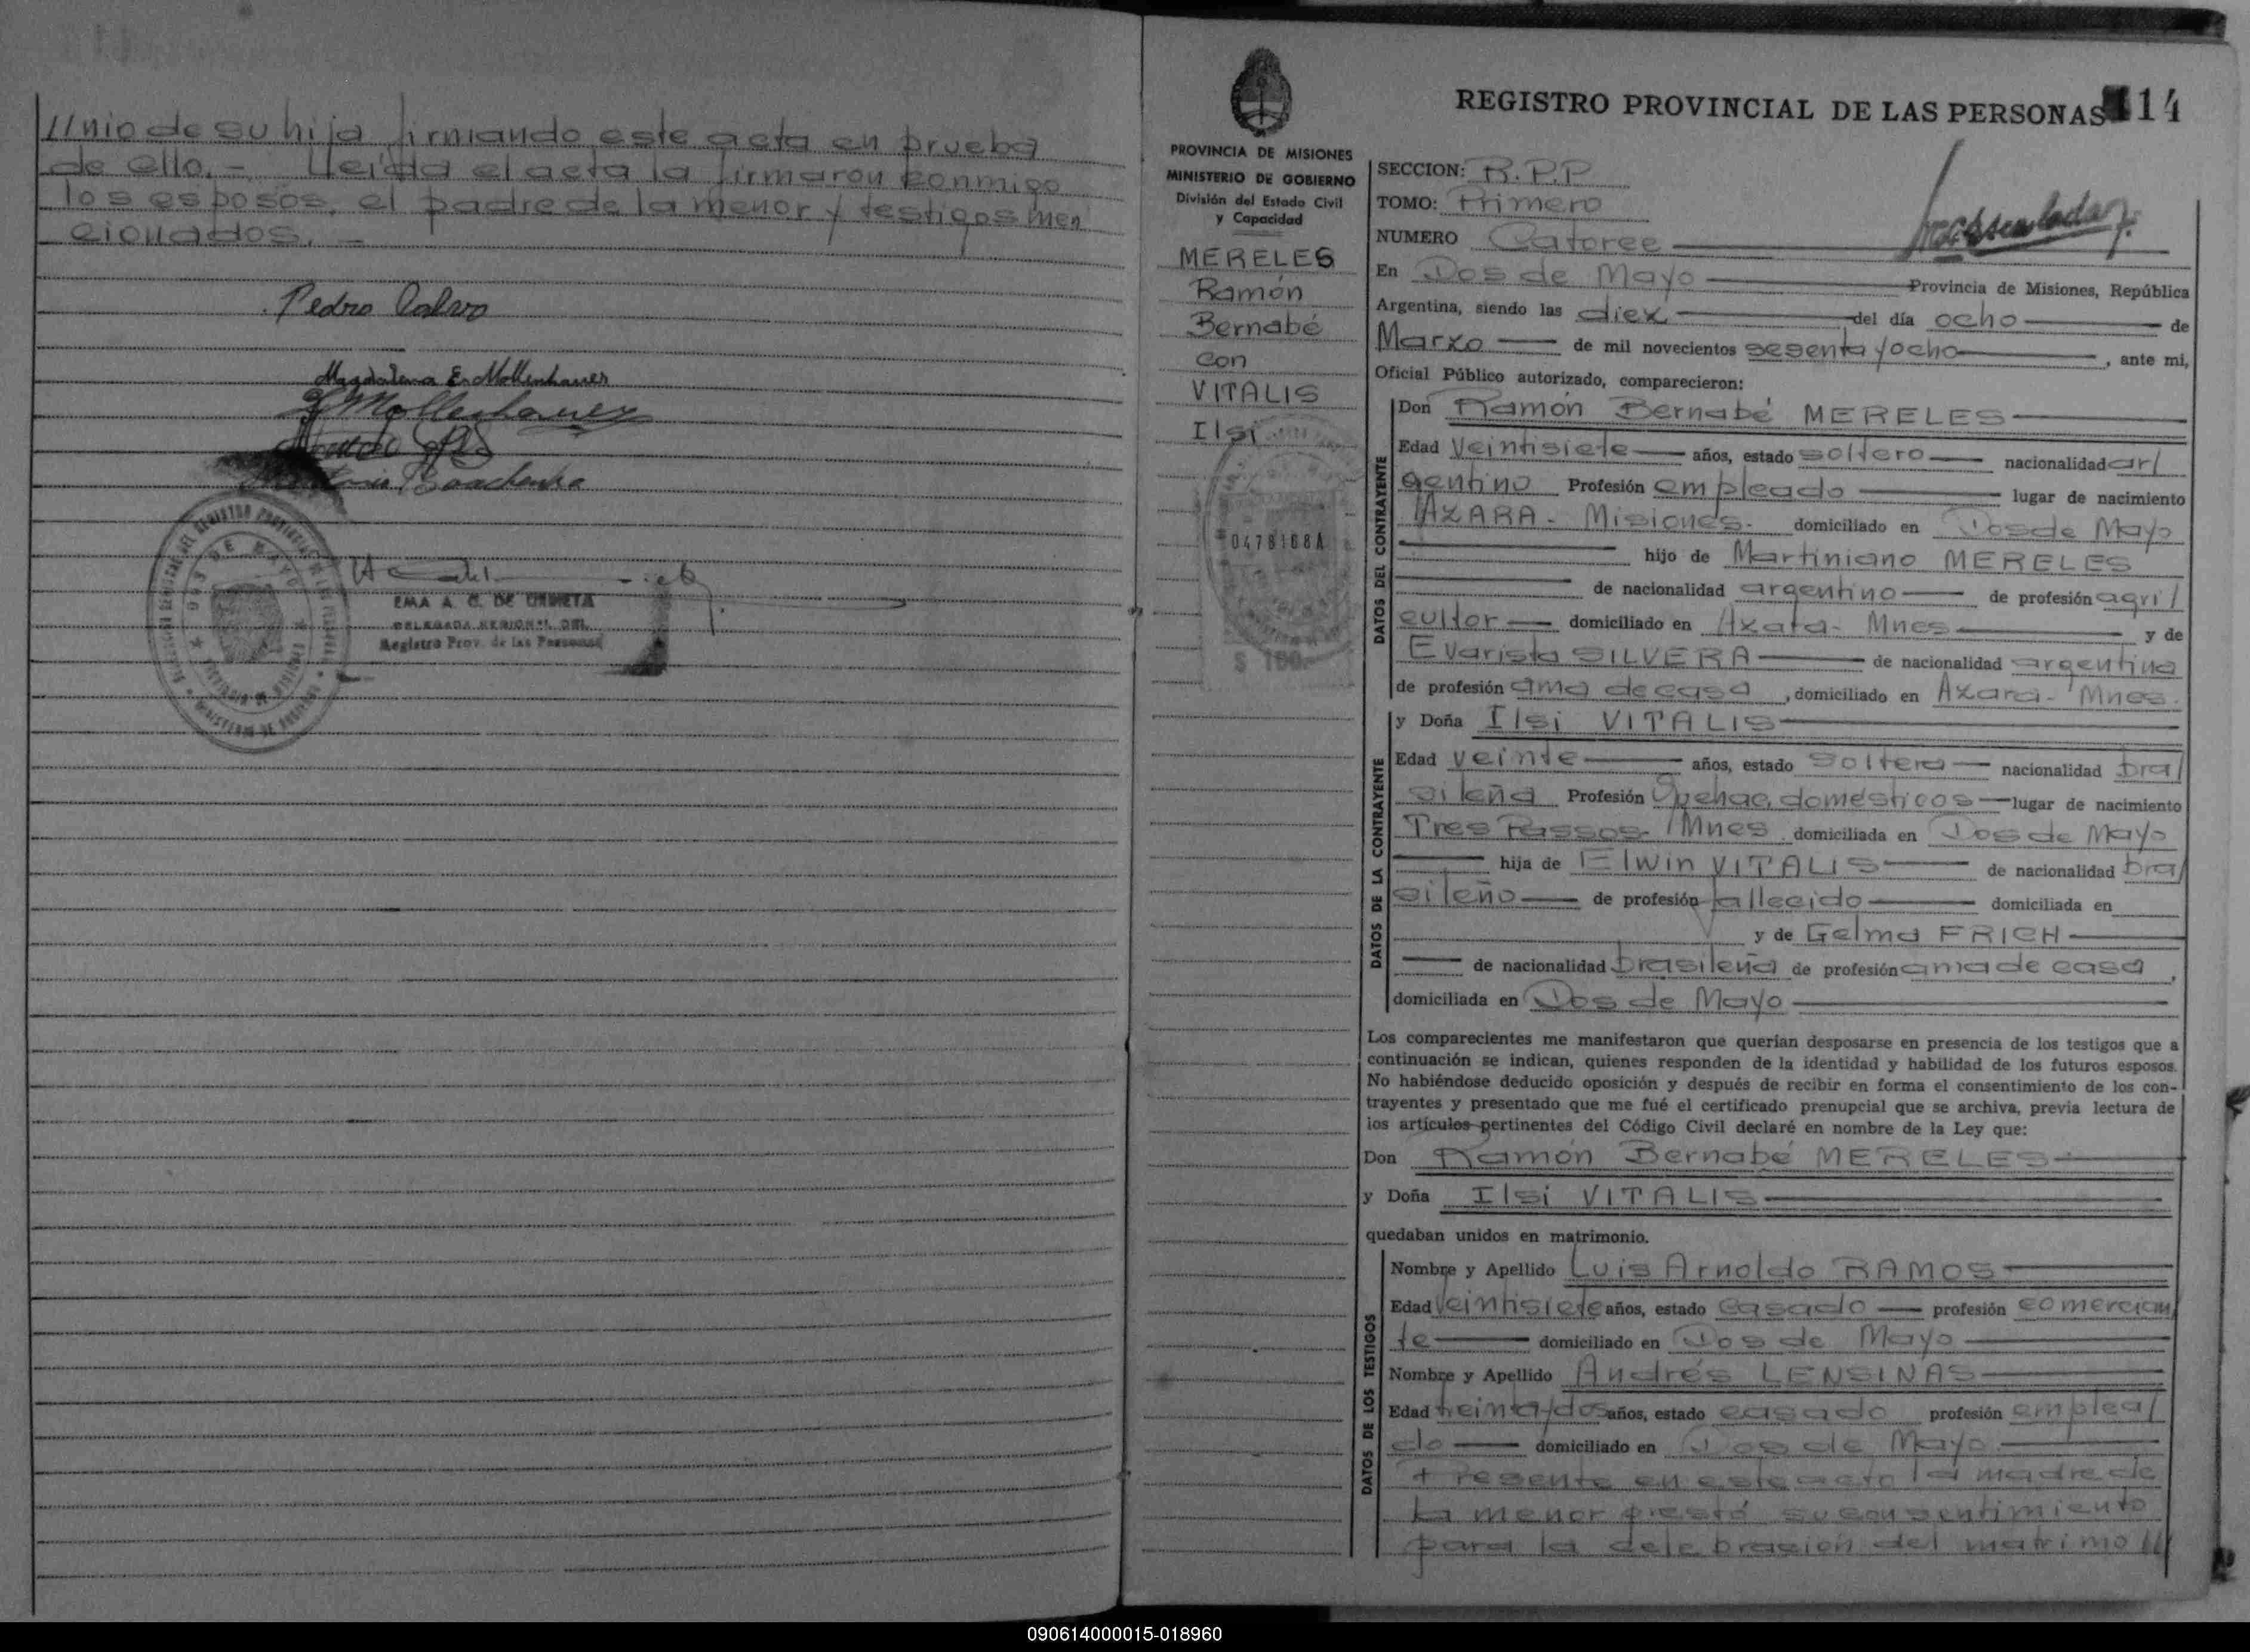 //nio de su hija firmando este acta en prueba
de ello. - Lleída el acta la firmaron conmigo
los esposos, el padre de la menor y testigos men
cionados. -
Pedro Calvo
Magdalena E. Mollenhauer
Mollenhauer
EMA A. C. DE URRETA
DELEGADA REGIONAL DEL
Registro Prov. de las Personas
DOS DE MAYO
REGISTRO PROVINCIAL DE LAS PERSONAS 114
PROVINCIA DE MISIONES
MINISTERIO DE GOBIERNO
División del Estado Civil
y Capacidad
MERELES
Ramón
Bernabé
con
VITALIS
Ilsi
0478168A
$ 100.-
SECCION: R.P.P
TOMO: Primero
NUMERO Catorce
En Dos de Mayo Provincia de Misiones, República
Argentina, siendo las diez del día ocho de
Marzo de mil novecientos sesenta y ocho, ante mi,
Oficial Público autorizado, comparecieron:
DATOS DEL CONTRAYENTE
Don Ramón Bernabé MERELES
Edad veintisiete años, estado soltero nacionalidad ar/
gentino Profesión empleado lugar de nacimiento
AZARA - Misiones. domiciliado en Dos de Mayo
hijo de Martiniano MERELES
de nacionalidad argentino de profesión agri/
cultor domiciliado en Azara - Mnes y de
Evarista SILVERA de nacionalidad argentina
de profesión ama de casa, domiciliado en Azara - Mnes.
DATOS DE LA CONTRAYENTE
y Doña Ilsi VITALIS
Edad veinte años, estado soltera nacionalidad bra/
sileña Profesión Quehac. domésticos lugar de nacimiento
Tres Passos - Mnes domiciliada en Dos de Mayo
hija de Elwin VITALIS de nacionalidad bra/
sileño de profesión fallecido domiciliada en
y de Gelma FRICH
de nacionalidad brasileña de profesión ama de casa,
domiciliada en Dos de Mayo
Los comparecientes me manifestaron que querían desposarse en presencia de los testigos que a
continuación se indican, quienes responden de la identidad y habilidad de los futuros esposos.
No habiéndose deducido oposición y después de recibir en forma el consentimiento de los con-
trayentes y presentado que me fué el certificado prenupcial que se archiva, previa lectura de
los artículos pertinentes del Código Civil declaré en nombre de la Ley que:
Don Ramón Bernabé MERELES
y Doña Ilsi VITALIS
quedaban unidos en matrimonio.
DATOS DE LOS TESTIGOS
Nombre y Apellido Luis Arnoldo RAMOS
Edad veintisiete años, estado casado profesión comercian/
te domiciliado en Dos de Mayo
Nombre y Apellido Andrés LENSINAS
Edad treinta y dos años, estado casado profesión emplea/
do domiciliado en Dos de Mayo.
Presente en este acto la madre de
la menor prestó su consentimiento
para la celebración del matrimo///
090614000015-018960